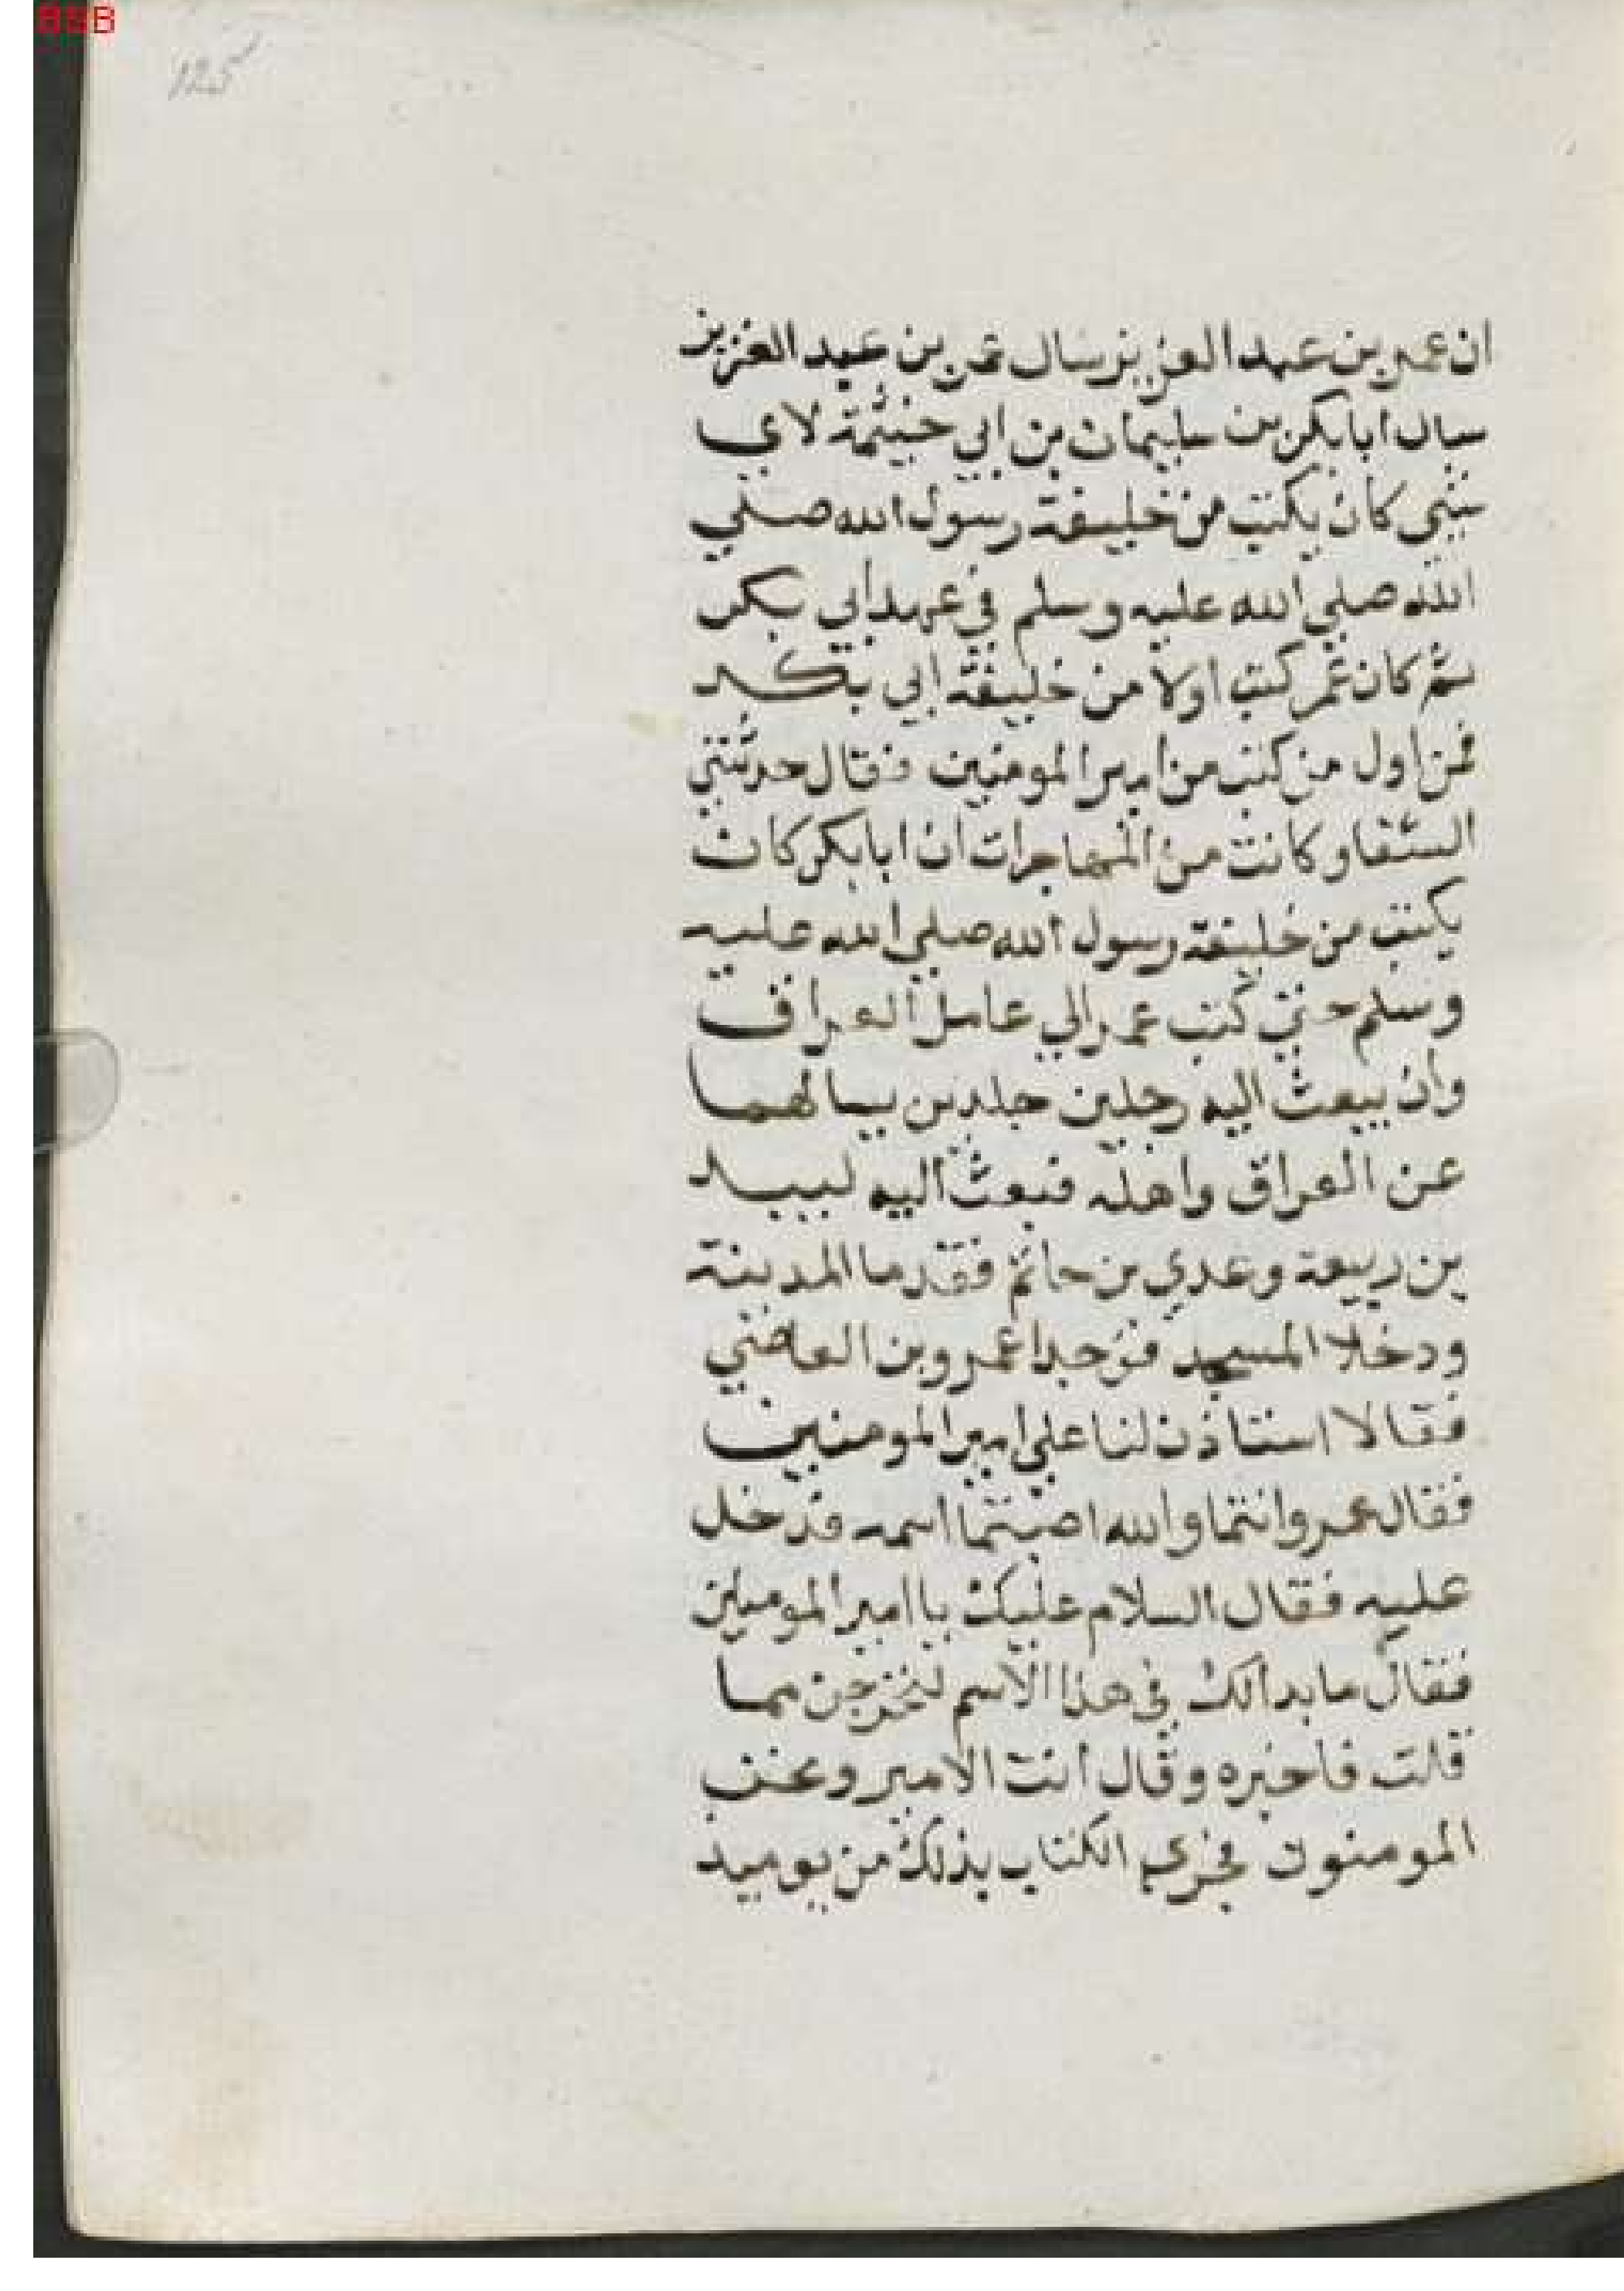 BSB
125
ان عمر بن عبد العزيز سال عمر بن عبد العزيز
سال ابا بكر بن سليمان بن ابي حنيثمة لاي
شي كان يكتب من خليفة رسول الله صلي
الله صلي الله عليه وسلم في عهد ابي بكر
ثم كان عمر كتب اولا من خليفة ابي بكر
فمن اول من كتب من امير المومنين فقال حدثتني
الشفا وكانت من المهاجرات ان ابا بكر كان
يكتب من خليفة رسول الله صلي الله عليه
وسلم حتي كتب عمر الي عامل العراق
وان يبعث اليه رجلين جلدين يسالهما
عن العراق واهله فبعث اليه لبيد
بن ربيعة وعدي بن حاتم فقدما المدينة
ودخلا المسجد فوجدا عمرو بن العاضي
فقالا استاذن لنا علي امير المومنين
فقال عمرو انتما والله اصبتما اسمه فدخل
عليه فقال السلام عليك يا امير المومنين
فقال ما بدالك في هذا الاسم لتخرجن مما
قلت فاخبره وقال انت الامير ونحن
المومنون فجري الكتاب بذلك من يوميد